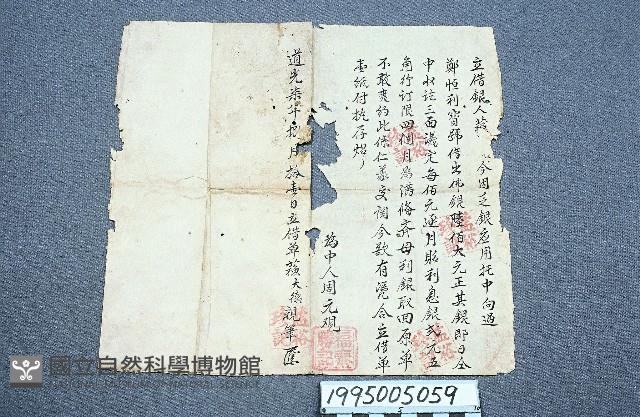 立借銀人蘇 今因乏銀應用托中向過
鄭恒利寶號借出佛銀陸佰大元正其銀即日仝
中收訖三面議定每佰元逐月貼利息銀弍元五
角行訂限四個月為滿備齊母利銀取回原單
不敢爽約此係仁義交關今欲有憑合立借單
壹紙付執存炤
為中人周元觀
道光柒年 月 日立借單蘇大 親筆
國立自然科學博物館
1995005059